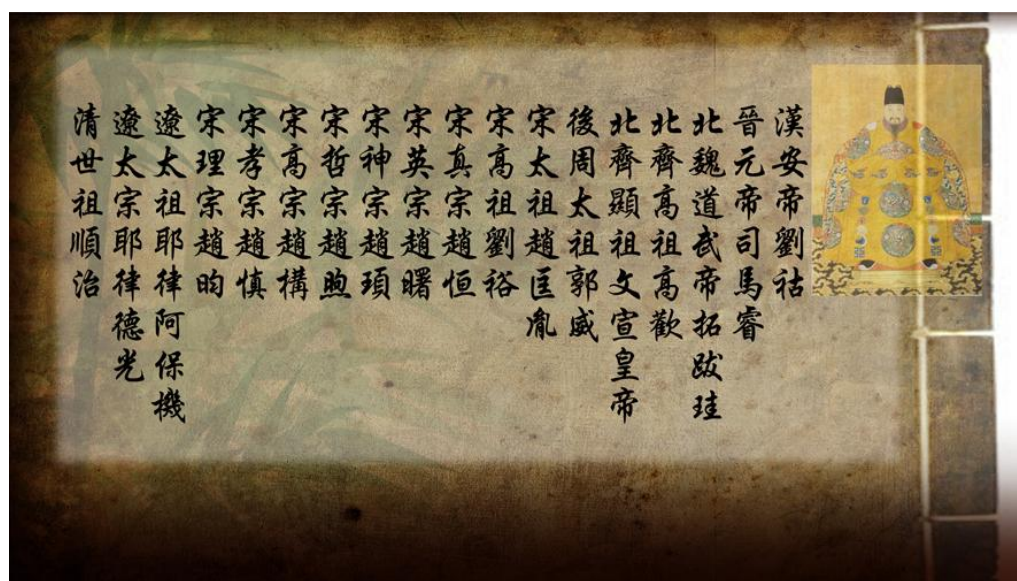 漢安帝劉祜
晉元帝司馬睿
北魏道武帝拓跋珪
北齊高祖高歡
北齊顯祖文宣皇帝
後周太祖郭威
宋太祖趙匡胤
宋高祖劉裕
宋真宗趙恒
宋英宗趙曙
宋神宗趙頊
宋哲宗趙煦
宋高宗趙構
宋孝宗趙慎
宋理宗趙昀
遼太祖耶律阿保機
遼太宗耶律德光
清世祖順治